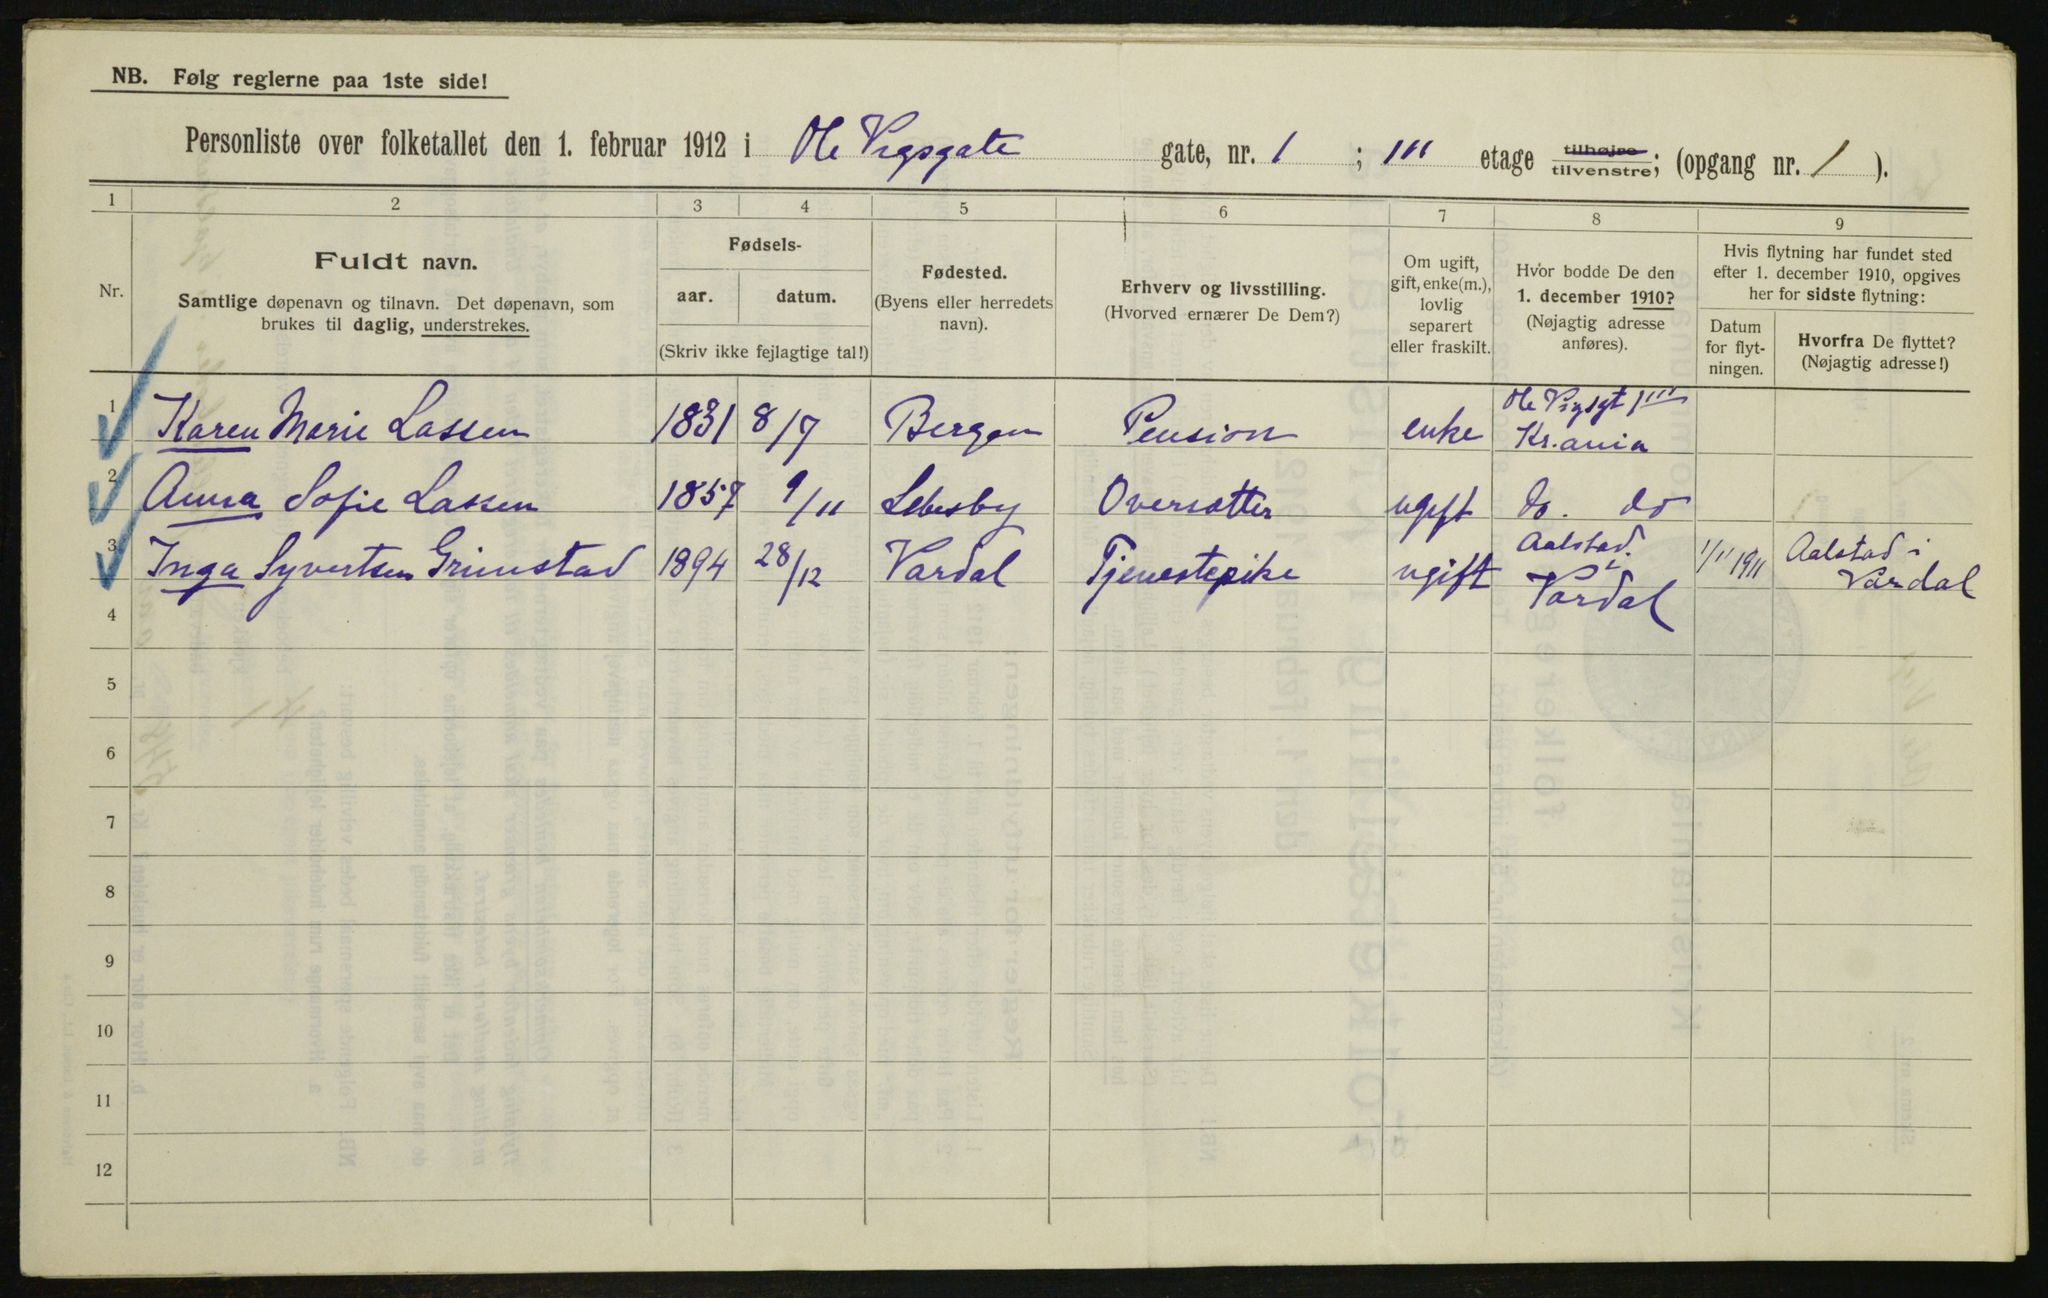 NB. Følg reglerne paa 1ste side!
Personliste over folketallet den 1. februar 1912 i Ole Vigsgate gate, nr. 1 ; III etage tilhøjre tilvenstre; (opgang nr. 1 ).
1 2 3 4 5 6 7 8 9
Nr.
Fuldt navn.
Samtlige døpenavn og tilnavn. Det døpenavn, som
brukes til daglig, understrekes.
Fødsels-
aar. datum.
(Skriv ikke fejlagtige tal!)
Fødested.
(Byens eller herredets
navn).
Erhverv og livsstilling.
(Hvorved ernærer De Dem?)
Om ugift,
gift, enke(m.),
lovlig
separert
eller fraskilt.
Hvor bodde De den
1. december 1910?
(Nøjagtig adresse
anføres).
Hvis flytning har fundet sted
efter 1. december 1910, opgives
her for sidste flytning:
Datum
for flyt-
ningen.
Hvorfra De flyttet?
(Nøjagtig adresse!)
1 Karen Marie Lassen 1831 8/7 Bergen Pension enke Ole Vigsgt 1III
Kr.ania
2 Anna Sofie Lassen 1857 9/11 Lebesby Oversætter ugift do. do
3 Inga Syvertsen Grimstad 1894 28/12 Vardal Tjenestepike ugift Aalstad i
Vardal
1/11 1911 Aalstad i
Vardal
4
5
6
7
8
9
10
11
12